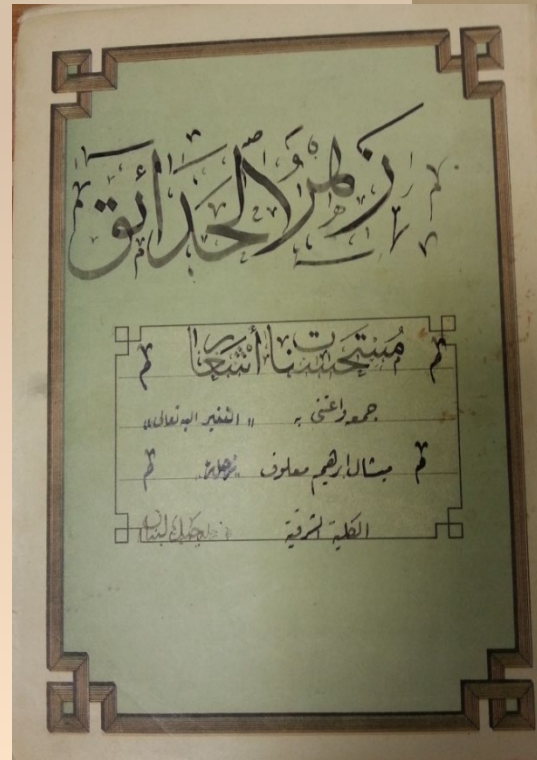 زهر الحدائق
مستحسنات أشعار
جمعه واعتنى به "الفقير اليه تعالى"
ميشال ابرهيم معلوف "زحلة"
الكلية الشرقية جبل لبنان